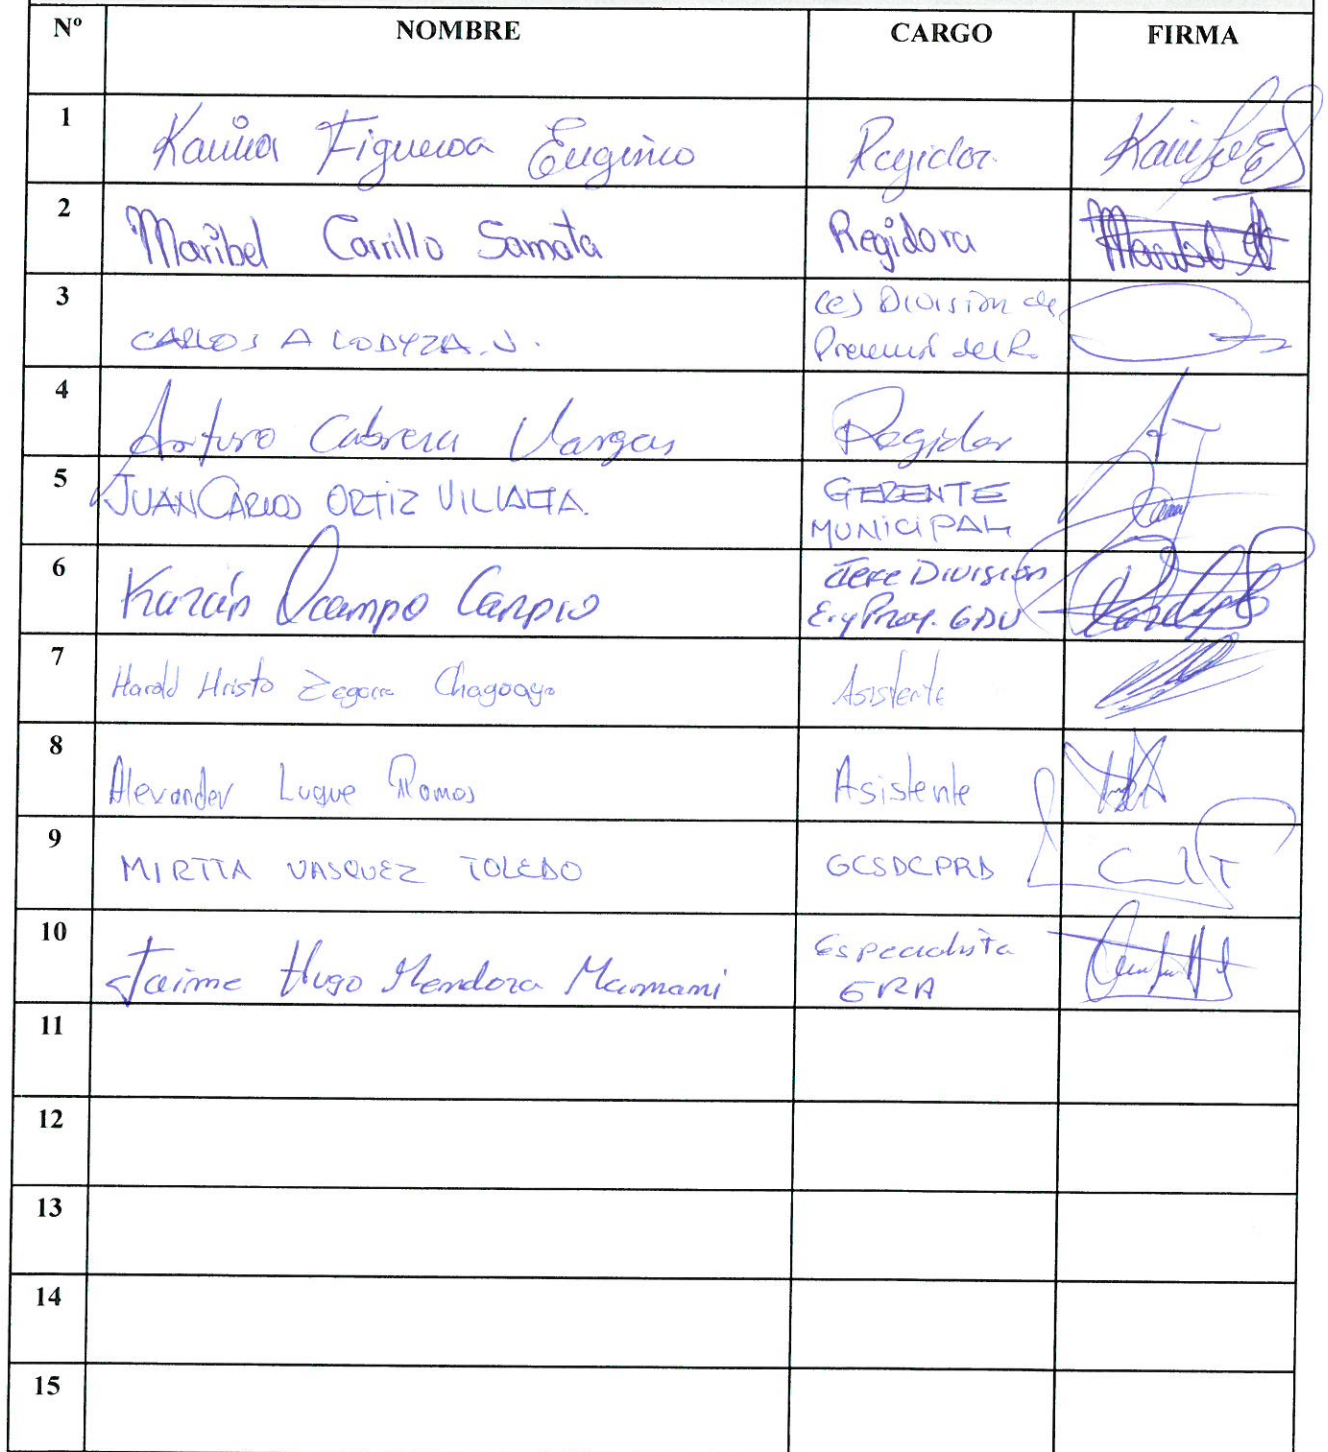 Nº NOMBRE CARGO FIRMA
1 Karina Figueroa Eugenio Regidor
2 Maribel Carrillo Samata Regidora
3 CARLOS A LODYZA. (e) División de
del R.
4 Arturo Cabrera Vargas Regidor
5 JUAN CARLOS ORTIZ VILLALTA. GERENTE
MUNICIPAL
6 Ocampo Carpio Jefe División
E. y Proy. GDU
7 Harold Hristo Zegarra Asistente
8 Alexander Luque Ramos Asistente
9 MIRTTA VASQUEZ TOLEDO GCSDCPRD
10 Jaime Hugo Mendoza Mamani Especialista
GRA
11
12
13
14
15